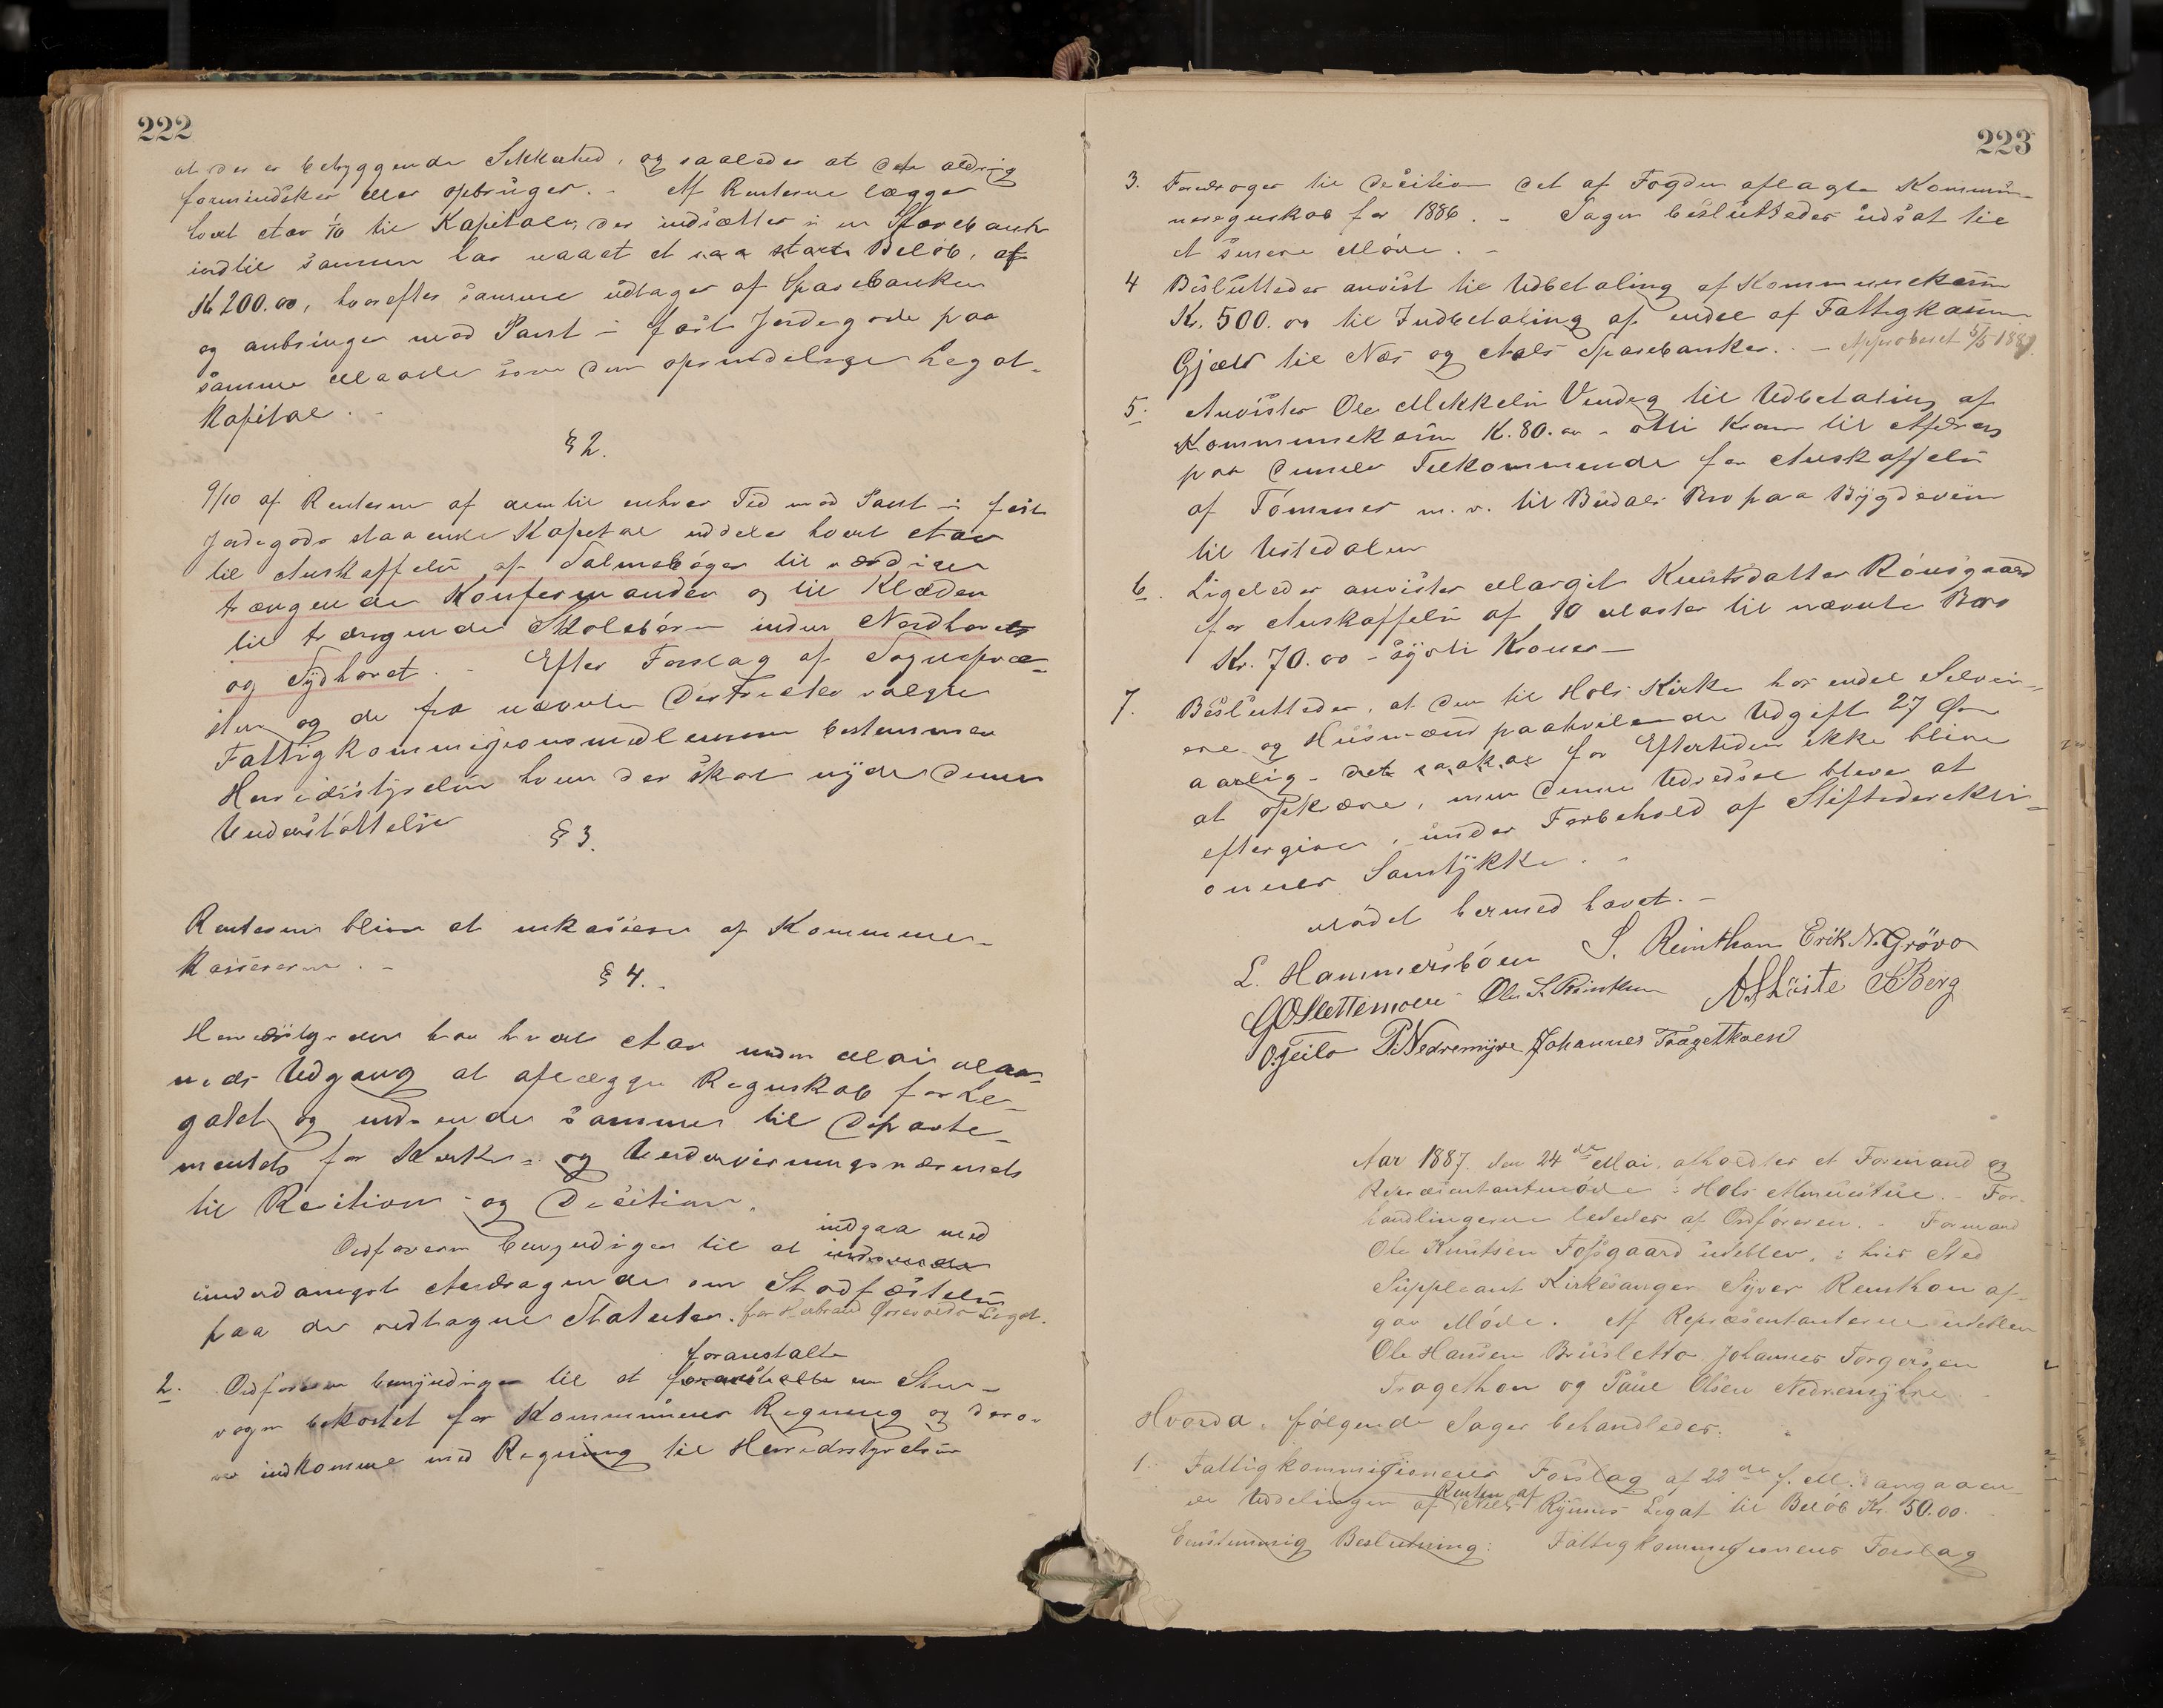 222
at der er betryggende Sikkerhed, og saaledes at den aldrig
formindskes eller opbruges. - Af Renterne lægges
hvert Aar 1/10 til Kapitalen, der indsættes i en Sparebank
indtil samme har naaet et saa stort Beløb, af
Kr 200.00, hvorefter samme udtages af Sparebanken
og anbringes mod Pant i fast Jordegods paa
samme Maade som den oprindelige Legat-
Kapital. -
§ 2.
9/10 af Renterne af den til enhver Tid mod Pant i fast
Jordegods staaende Kapital uddeles hvert Aar
til Anskaffelse af Salmebøger til værdige
trængende Konfirmander og til Klæder
til trængende Skolebørn inden Nordhovet
og Sydhovet. - Efter Forslag af Sognepræ-
sten og de fra nævnte Distrikter valgte
Fattigkommissionsmedlemmer bestemmer
Herredsstyrelsen hvem der skal nyde denne
Understøttelse
§ 3.
Renterne bliver at inkassere af Kommune-
kassereren. -
§ 4. -
Herredsstyrelsen har hvert Aar inden Mai Maa-
neds Udgang at aflægge Regnskab for Le-
gatet og indsende samme til Departe-
mentet for Kirke- og Undervisningsvæsenet
til Revision og Decision.
indgaa med
Ordføreren bemyndiges til at indsende
underdanigst Andragende om Stadfæstelse
paa de vedtagne Statuter. for Herbrand Legat.
foranstalte
2. Ordføreren bemyndiges til at foranstalte en
vogn bekostet for Kommunens Regning og derov
er indkomme med Regning til Herredsstyrelsen
223
3. Foredroges til Decision det af Fogden aflagte Kommu-
neregnskab for 1886. - Sagen besluttedes udsat til
et senere Møde. -
4 Besluttedes anvist til Udbetaling af Kommunekassen
Kr. 500.00 til Indbetaling af endel af Fattigkassens
Gjæld til Næs og Aals Sparebanker. - Approberet 5/5 1887.
5. Anvistes Ole Mekkelsen Vendeg til Udbetaling af
Kommunekassen K. 80.00 - otti Kroner til Afdrag
paa dennes Tilkommende for Anskaffelse
af Tømmer m. v. til Budals Bro paa Bygdeveien
til Ustedalen
6. Ligeledes anvistes Margit Knutsdatter Rønsgaard
for Anskaffelse af 10 Master til nævnte Bro
Kr. 70.00 - sytti Kroner -
7. Besluttedes, at den til Hols Kirke hos endel Selvei-
ere og Husmænd paahvilende Udgift 27 Øre
aarlig - det saakal for Eftertiden ikke bliver
at opkræve, men denne Udredsel bliver at
eftergive, under Forbehold af Stiftsdirekti-
onens Samtykke. -
Mødet hermed hævet. -
L. Hammersbøen S. Reinthon Erik N. Grøvo
G O Slettemoen Ole S. Reinthon A Huste S Berg
O. Geilo P. Nedremyre Johannes Trægethoen
Aar 1887 den 24de Mai, afholdtes et Formand og
Repræsentantmøde i Hols Almuestue. - For-
handlingerne lededes af Ordføreren. - Formand
Ole Knutsen Fossgaard udeblev, i hvis Sted
Suppleant Kirkesanger Syver Reinthon af-
gav Møde. Af Repræsentanterne udeblev
Ole Hansen Brusletto, Johannes Torgersen
Trægethon og Paul Olsen Nedremyhre.
Hvorda følgende Sager behandledes:
1. Fattigkommissionens Forslag af 22de f. M. angaaen-
Renten af
de Uddelingen af Nils Rynnes Legat til Beløb Kr. 50.00.
Eenstemmig Beslutning: Fattigkommissionens Forslag